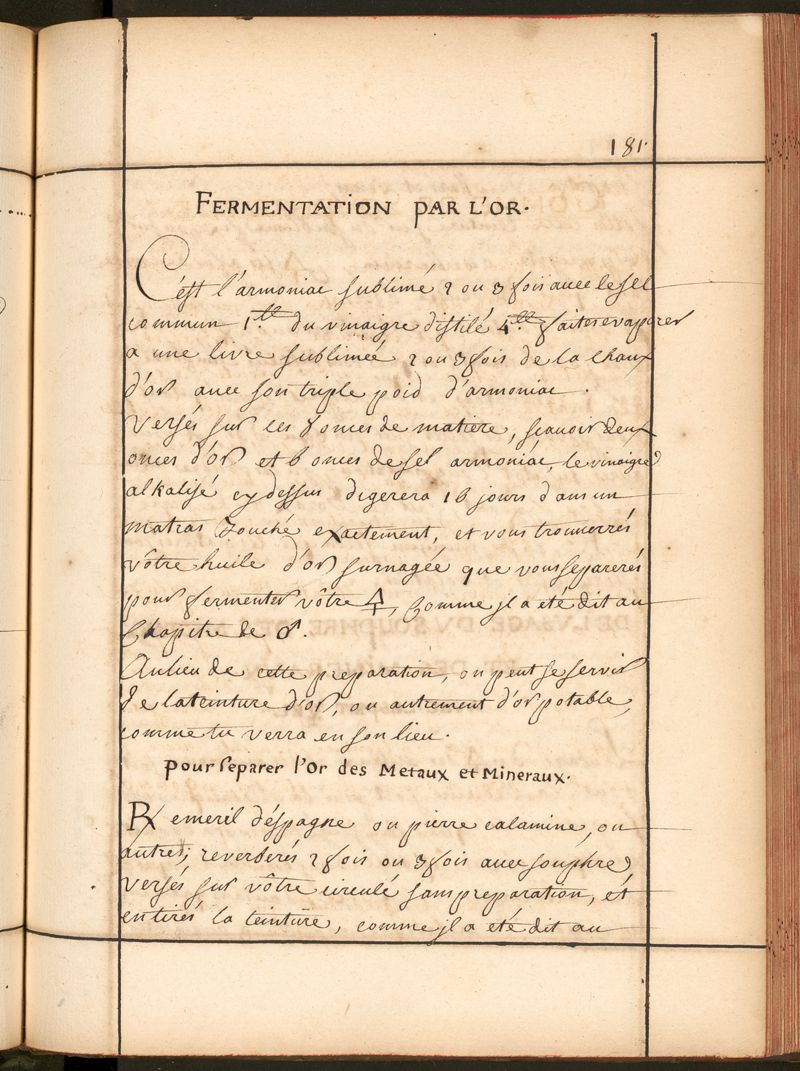 181.
FERMENTATION PAR L'OR.
C'est l'armoniac sublimé 2 ou 3 fois auec le sel
commun 1.ll du vinaigre distilé 4.ll faites evaporer
a une livre sublimée 2 ou 3 fois de la chaux
d'or auec son triple poid d'armoniac.
Versés sur ces 8 onces de matiere, scauoir deux
onces d'or et 6 onces de sel armoniac, le vinaigre
alkalisé cy dessus digerera 16 jours dans un
matras bouché exactement, et vous trouuerrés
vôtre huile d'or surnagée que vous separerés
pour fermenter vôtre 🜍, comme jl a eté dit au
Chapitre de ♂.
Aulieu de cette preparation, on peut se servir
de la teinture d'or, ou autrement d'or potable,
comme tu verra en son lieu.
Pour separer l'Or des Metaux et Mineraux.
℞ emeril d'éspagne ou pierre calamine, ou
autres, reverberés 2 fois ou 3 fois auec souphre
versés sur vôtre circulé sans preparation, ét
en tirés la teinture, comme jl a eté dit au